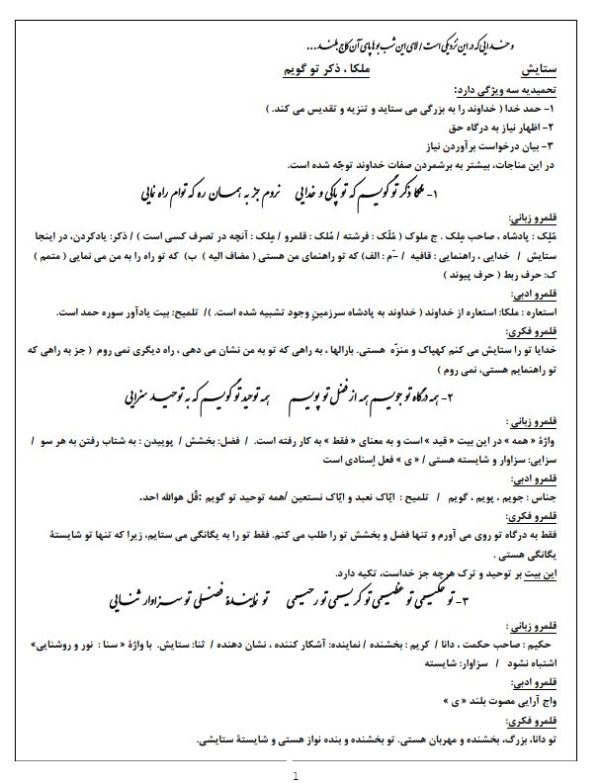 و خدایی که در این نزدیکی است / لای این شب بوها پای آن کاج بلند...
ستایش ملکا ، ذکر تو گویم
تحمیدیه سه ویژگی دارد:
۱- حمد خدا ( خداوند را به بزرگی می ستاید و تنزیه و تقدیس می کند. )
۲- اظهار نیاز به درگاه حق
۳- بیان درخواست برآوردن نیاز
در این مناجات، بیشتر به برشمردن صفات خداوند توجّه شده است.
۱- ملکا ذکر تو گویم که تو پاکی و خدایی نروم جز به همان ره که توام راه نمایی
قلمرو زبانی:
مَلِک : پادشاه ، صاحب مِلک . ج ملوک ( مَلَک : فرشته / مُلک : قلمرو / مِلک : آنچه در تصرف کسی است ) / ذکر: یادکردن، در اینجا
ستایش / خدایی ، راهنمایی : قافیه / ـَ م : الف) که تو راهنمای من هستی ( مضاف الیه ) ب) که تو راه را به من می نمایی ( متمم )
ک: حرف ربط ( حرف پیوند )
قلمرو ادبی:
استعاره : ملکا: استعاره از خداوند ( خداوند به پادشاه سرزمینِ وجود تشبیه شده است. )/ تلمیح: بیت یادآور سوره حمد است.
قلمرو فکری:
خدایا تو را ستایش می کنم کهپاک و منزّه هستی. بارالها ، به راهی که تو به من نشان می دهی ، راه دیگری نمی روم ( جز به راهی که
تو راهنمایم هستی، نمی روم )
۲- همه درگاه تو جویم همه از فضل تو پویم همه توحید تو گویم که به توحید سزایی
قلمرو زبانی :
واژهٔ « همه » در این بیت « قید » است و به معنای « فقط » به کار رفته است. / فضل: بخشش / پوییدن : به شتاب رفتن به هر سو /
سزایی: سزاوار و شایسته هستی / « ی » فعل اِسنادی است
قلمرو ادبی:
جناس : جویم ، پویم ، گویم / تلمیح : ایّاک نعبد و ایّاک نستعین /همه توحید تو گویم :قُل هوالله احد.
قلمرو فکری:
فقط به درگاه تو روی می آورم و تنها فضل و بخشش تو را طلب می کنم. فقط تو را به یگانگی می ستایم، زیرا که تنها تو شایستهٔ
یگانگی هستی .
این بیت بر توحید و ترک هرچه جز خداست، تکیه دارد.
۳- تو حکیمی تو عظیمی تو کریمی تو رحیمی تو نمایندهٔ فضلی تو سزاوار ثنایی
قلمرو زبانی :
حکیم : صاحب حکمت ، دانا / کریم : بخشنده / نماینده: آشکار کننده ، نشان دهنده / ثنا: ستایش. با واژهٔ « سنا : نور و روشنایی»
اشتباه نشود / سزاوار: شایسته
قلمرو ادبی:
واج آرایی مصوت بلند « ی »
قلمرو فکری:
تو دانا، بزرگ، بخشنده و مهربان هستی. تو بخشنده و بنده نواز هستی و شایستهٔ ستایشی.
1